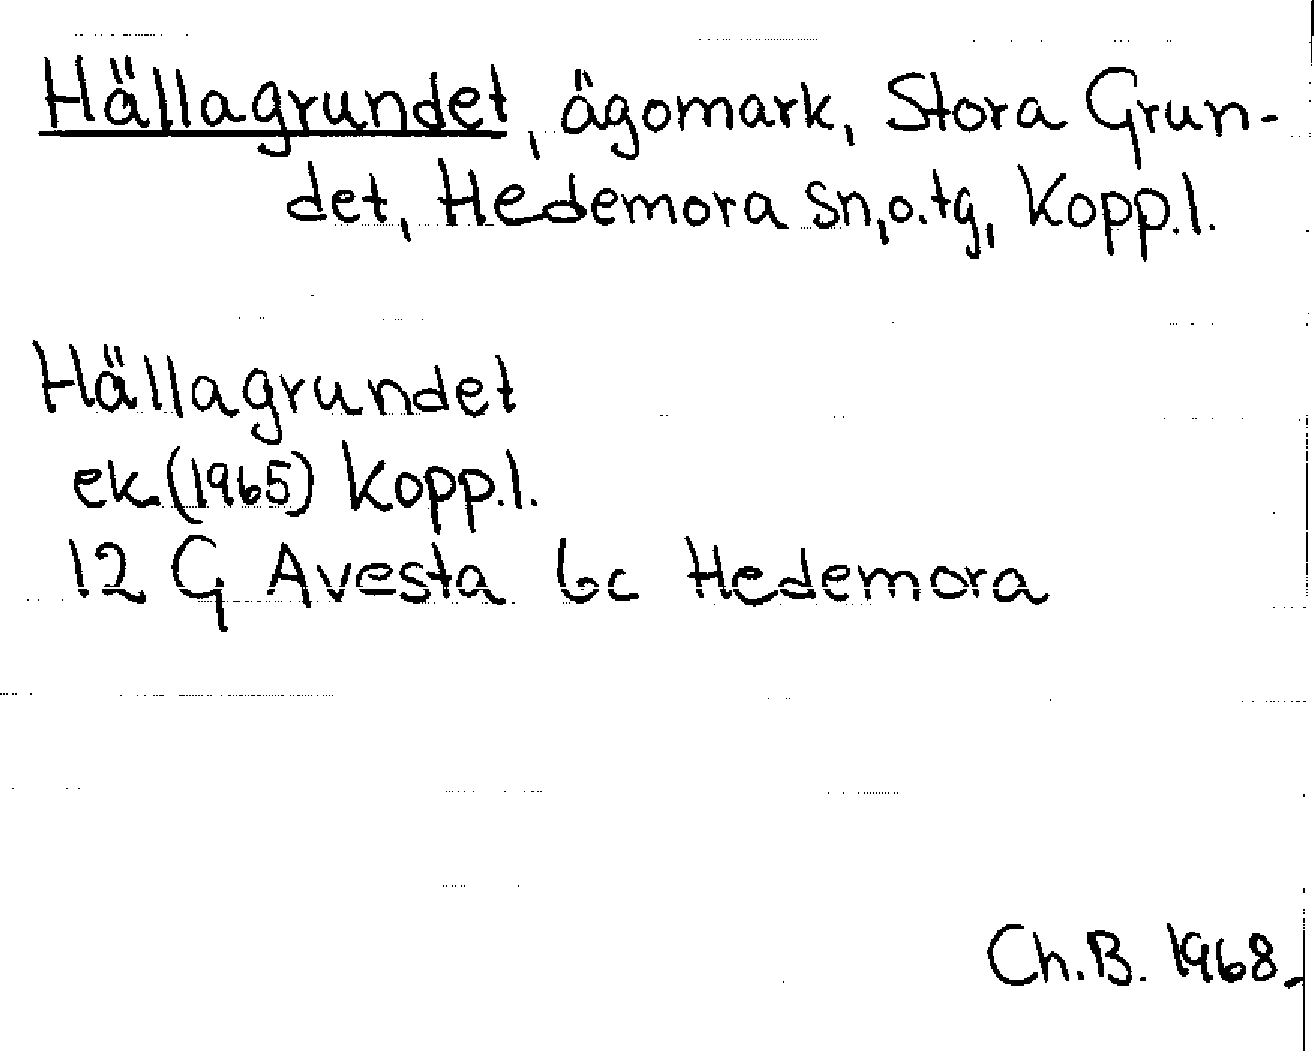 Hällagrundet, ägomark, Stora Grun-
det, Hedemora sn,o.tg, Kopp.l.
Hällagrundet
ek.(1965) Kopp.l.
12 G Avesta 6c Hedemora
Ch.B. 1968.